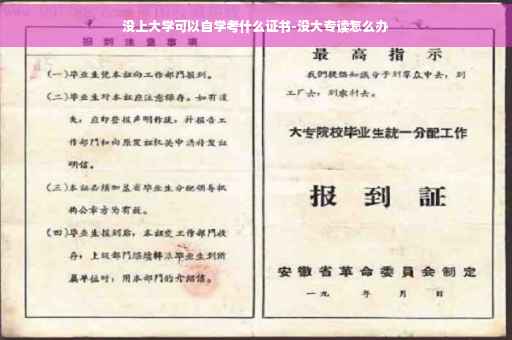 没上大学可以自学考什么证书-没大专读怎么办
报到注意事项
(一)毕业生凭本证向工作部门报到。
(二)毕业生对本证应注意保存。如有遗
失，应即登报声明作废，并报告工
作部门和向原发证机关申请补发证
明信。
(三)本证必须加盖省毕业生分配领导机
构公章方为有效。
(四)毕业生报到后，本证交工作部门收
存；上级部门
毕业生到所
属单位时，用本部门的介绍信。
最高指示
我们提倡知识分子到群众中去，到
工厂去，到农村去。
大专院校毕业生統一分配工作
报到証
安徽省革命委員会制定
一九 年 月 日